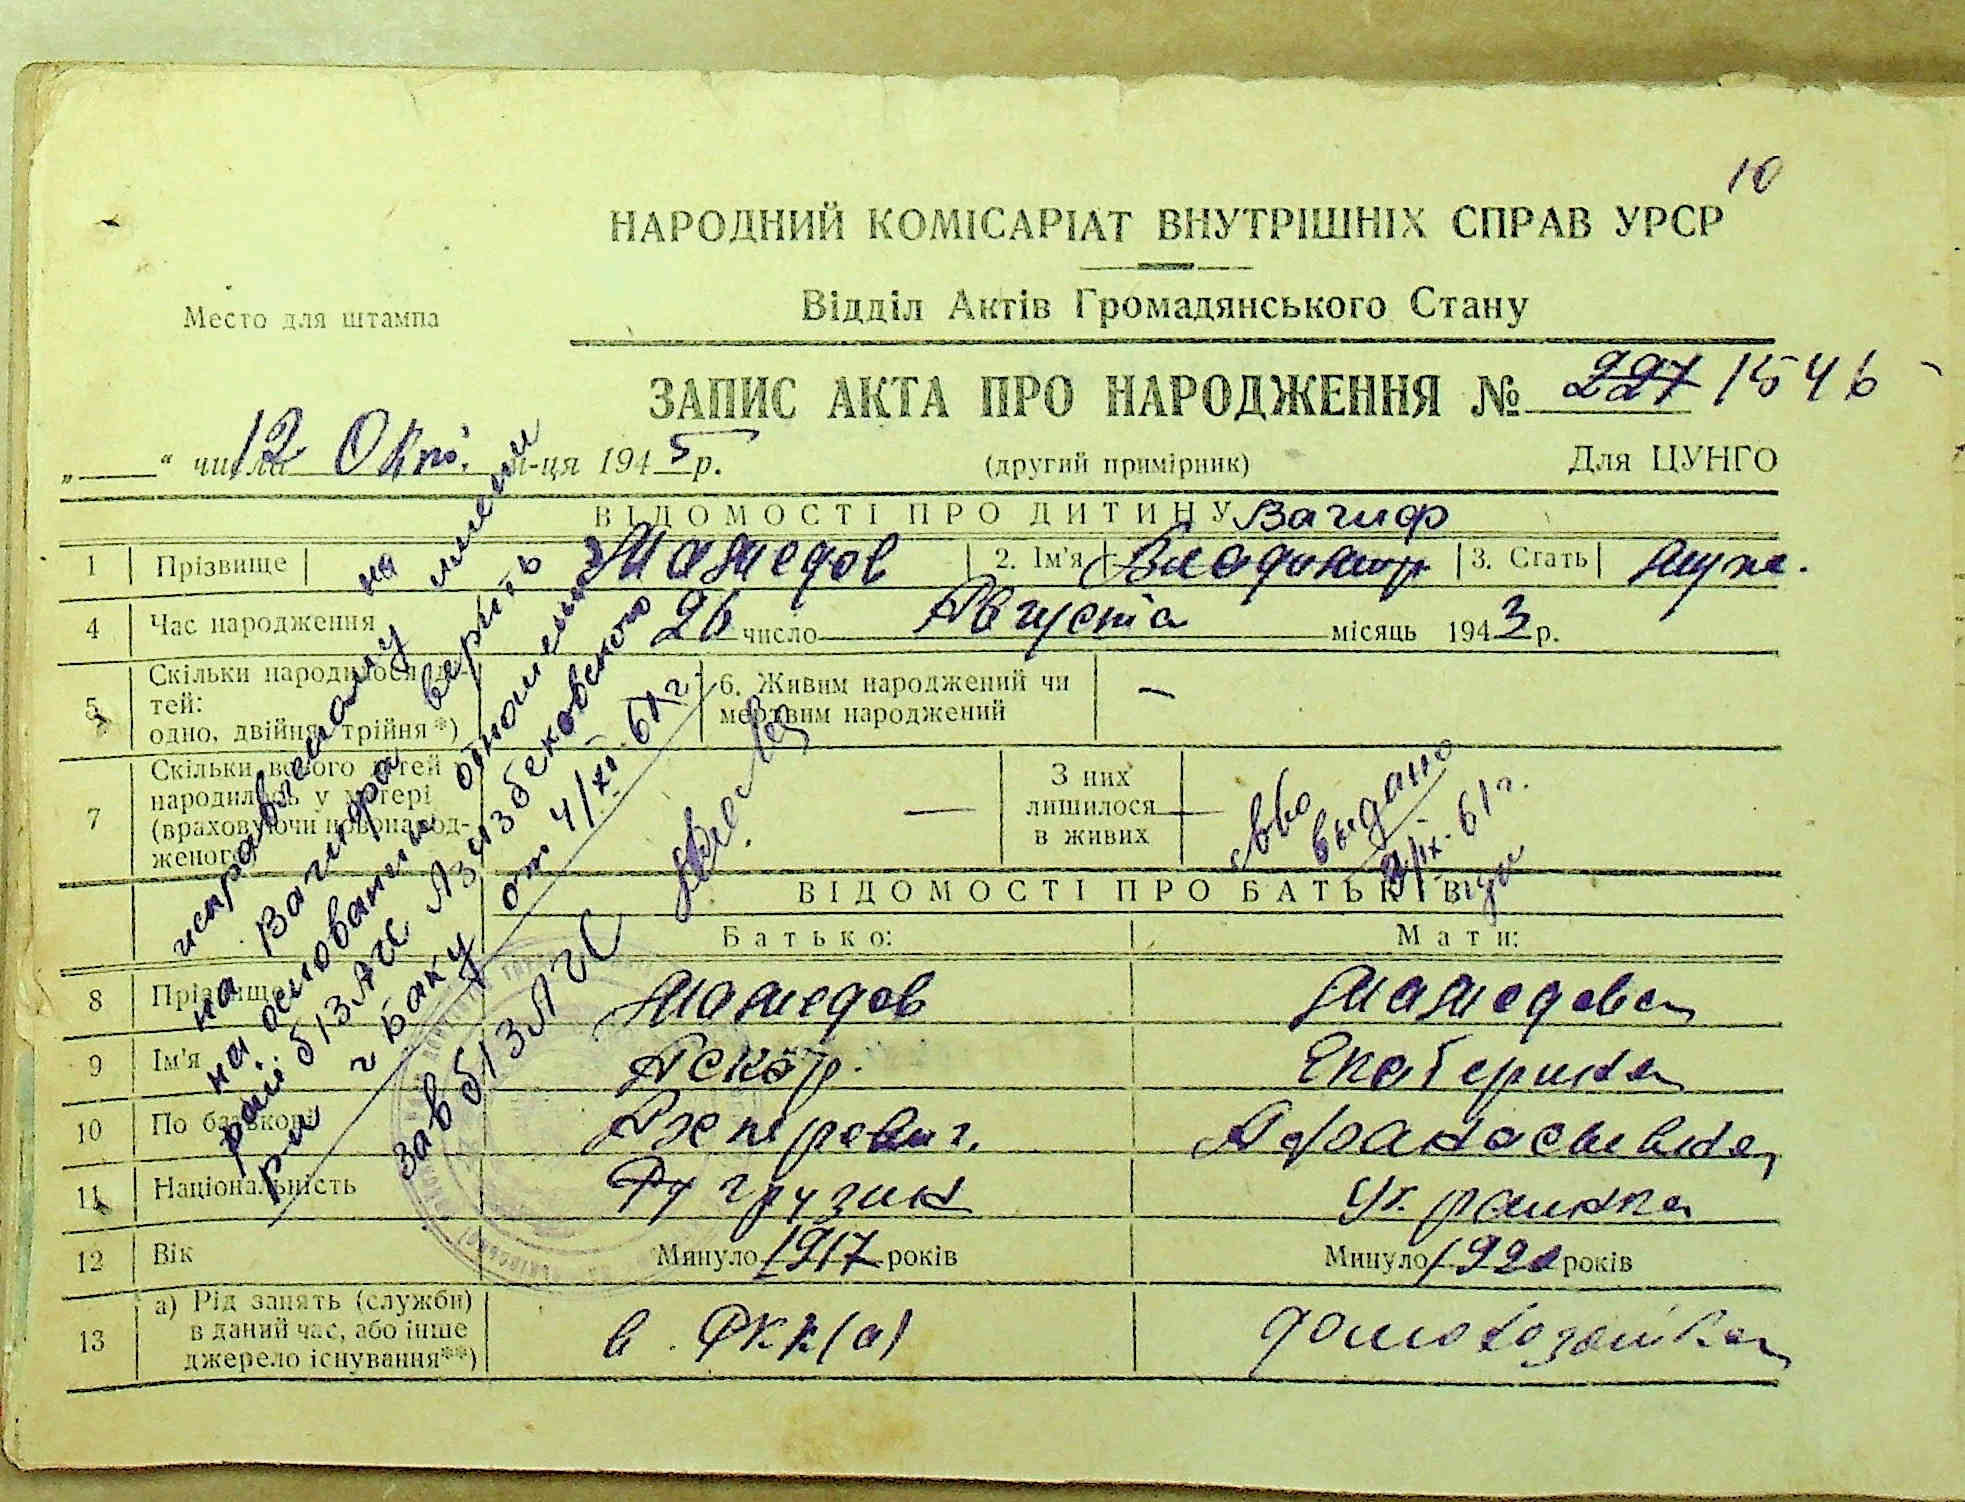 10
НАРОДНИЙ КОМІСАРІАТ ВНУТРІШНІХ СПРАВ УРСР
Место для штампа
Відділ Актів Громадянського Стану
ЗАПИС АКТА ПРО НАРОДЖЕННЯ № 227 1546
„ “ числа 12 Окт. м-ця 1945 р.
(другий примірник)
Для ЦУНГО
ВІДОМОСТІ ПРО ДИТИНУ Вагиф
1 Прізвище Мамедов 2. Ім'я Владимир 3. Стать муж.
4 Час народження 26 число Августа місяць 1943 р.
5 Скільки народилося ді-
тей:
одно, двійня, трійня*)
6. Живим народжений чи
мертвим народжений —
7 Скільки всього дітей
народилось у матері
(враховуючи новонарод-
женого) —
З них
лишилося
в живих —
ВІДОМОСТІ ПРО БАТЬКІВ
Батько: Мати:
8 Прізвище Мамедов Мамедова
9 Ім'я Аскер. Екатерина
10 По батькові Афанасьевна
11 Національність Ру грузин Украинка
12 Вік Минуло 1917 років Минуло 1921 років
13 а) Рід занять (служби)
в даний час, або інше
джерело існування**)
в РКК(а) домохозяйка
исправленому на
на Вагифа верить
на основании отношения
рай б/ЗАГС Азизбековского
р-н г Баку от 4/XI-61 г.
Зав б/ЗАГС
св-во
выдано
/IX-61 г.